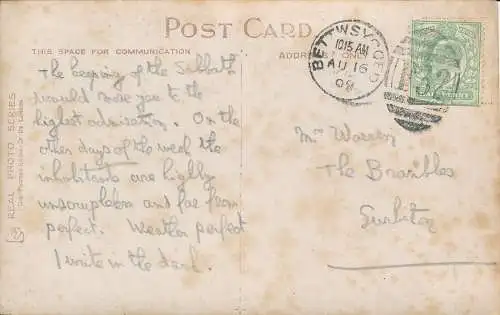 POST CARD
THIS SPACE FOR COMMUNICATION
ADDRESS ONLY
The keeping of the Sabbath
would move you to the
highest admiration. On the
other days of the week the
inhabitants are highly
unscrupulous and far from
perfect. Weather perfect
I write in the dark.
BETTWSYCOED
10.15 AM
AU 16
09
Mrs Warren
The Brambles
Surbiton
REAL PHOTO SERIES